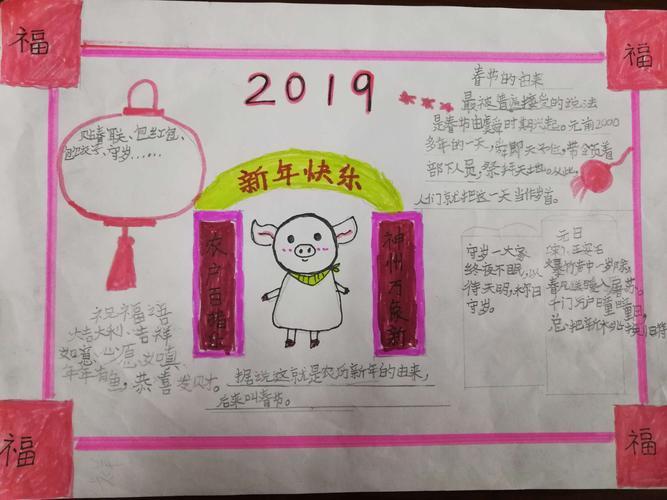 福
福
2019
春节的由来
最被普遍接受的说法
是春节由虞舜时期兴起。元前2000
多年的一天,舜即天子位,带领着
部下人员,祭拜天地。从此,
人们就把这一天当作岁首。
贴春联、包红包、
包饺子、守岁……
新年快乐
农户百
神州万象新
守岁一大家
终夜不眠,以
待天明,称曰
守岁。
元日
王安石
爆竹声中一岁除,
春风送暖入屠苏。
千门万户曈曈日,
总把新桃
祝福语
大吉大利、吉祥
如意、心愿
年年有鱼,恭喜发财。
据说这就是农历新年的由来,
后来叫春节。
福
福